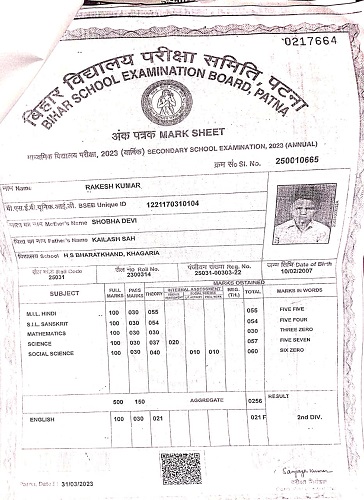 0217664
बिहार विद्यालय परीक्षा समिति, पटना
BIHAR SCHOOL EXAMINATION BOARD, PATNA
अंक पत्रक MARK SHEET
माध्यमिक विद्यालय परीक्षा, 2023 (वार्षिक) SECONDARY SCHOOL EXAMINATION, 2023 (ANNUAL)
क्रम सं० Sl. No. 250010665
नाम Name RAKESH KUMAR
बी.एस.ई.बी यूनिक आई.डी. BSEB Unique ID 1221170310104
माता का नाम Mother's Name SHOBHA DEVI
पिता का नाम Father's Name KAILASH SAH
विद्यालय School H S BHARATKHAND, KHAGARIA
Roll Code रौल नं० Roll No. पंजीयन संख्या Reg. No. जन्म तिथि Date of Birth
25031 2300314 25031-00303-22 10/02/2007
MARKS OBTAINED
SUBJECT FULL MARKS PASS MARKS THEORY INTERNAL ASSESSMENT REG. (TH.) TOTAL MARKS IN WORDS
M.I.L. HINDI 100 030 055 055 FIVE FIVE
S.I.L. SANSKRIT 100 030 054 054 FIVE FOUR
MATHEMATICS 100 030 030 030 THREE ZERO
SCIENCE 100 030 037 020 057 FIVE SEVEN
SOCIAL SCIENCE 100 030 040 010 010 060 SIX ZERO
500 150 AGGREGATE 0256 RESULT
ENGLISH 100 030 021 021 F 2nd DIV.
31/03/2023
Sanjay Kumar
परीक्षा नियंत्रक